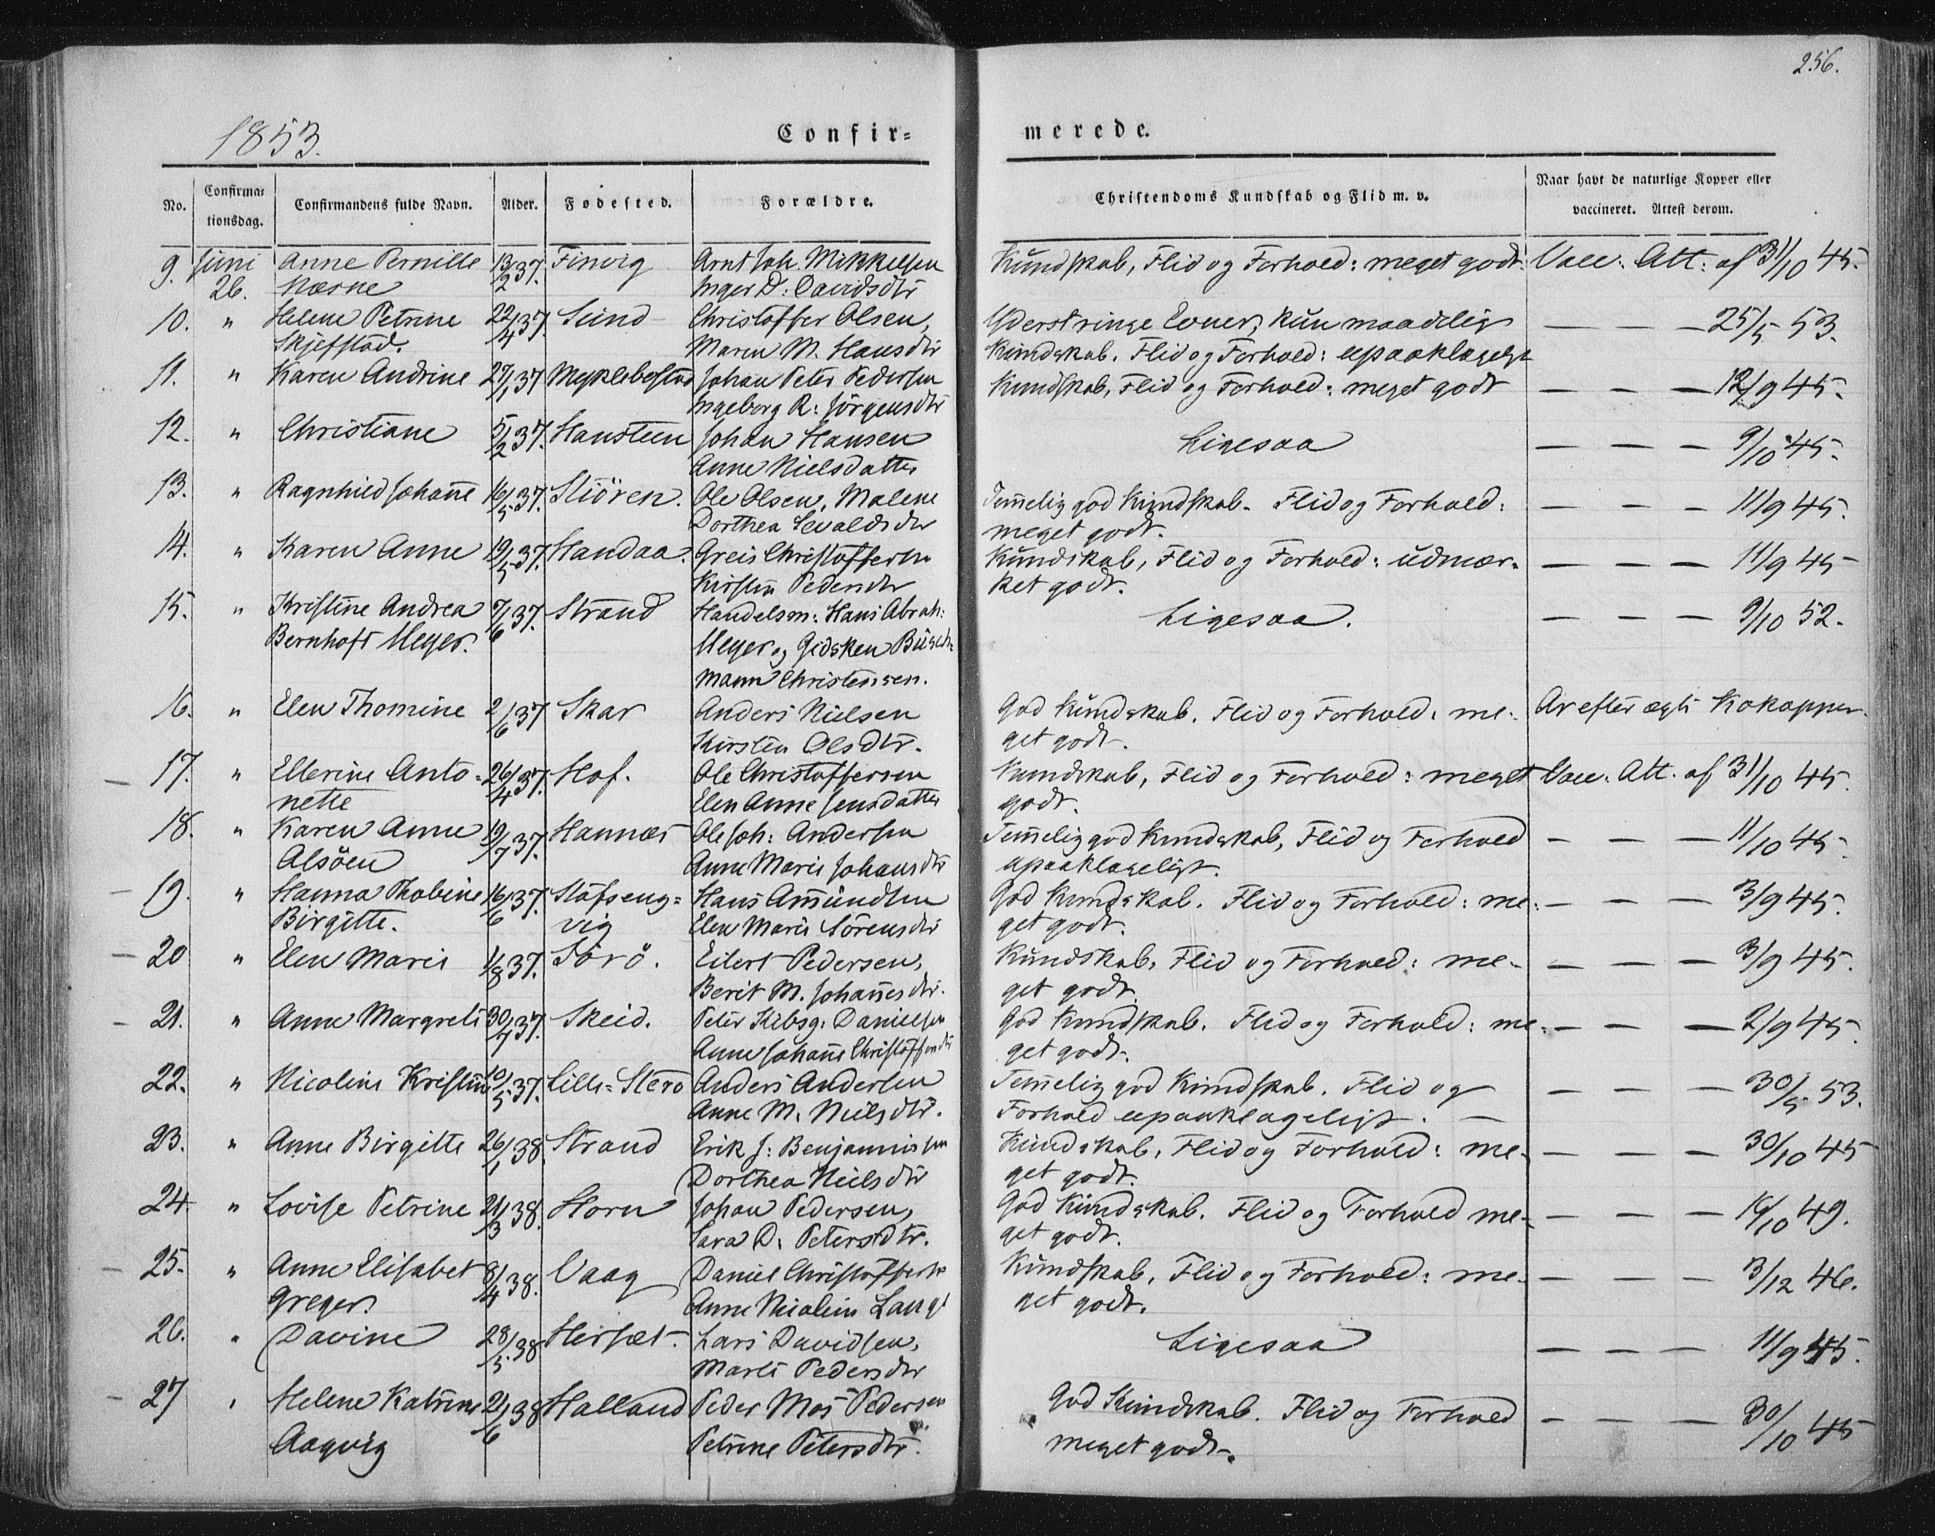 256.
1853.
Confir=
merede.
No.
Confirma=
tionsdag.
Confirmandens fulde Navn.
Alder.
Fødested.
Forældre.
Christendoms Kundskab og Flid m. v.
Naar havt de naturlige Kopper eller
vaccineret. Attest derom.
9. Juni Anne Pernille 13/2 37. Finvig Arnt Joh. Mikkelsen Kundskab, Flid og Forhold: meget godt. Vacc. Att: af 31/10 45.
26. Næsne Inger D: Davidsdtr
10. " Helene Petrine 22/4 37. Sund Christoffer Olsen, Yderst ringe Evner, kun maadelig — — — 25/5 53.
Skjefstad. Maren M. Hansdtr Kundskab. Flid og Forhold: upaaklageligt
11. " Karen Andrine 27/1 37 Myklebostad Johan Peter Pedersen Kundskab, Flid og Forhold: meget godt — — — 12/9 45.
Ingeborg R: Jørgensdtr
12. " Christiane 5/2 37. Hansteen Johan Hansen Ligesaa — — — 9/10 45.
Anne Nielsdatter
13. " Ragnhild Johanne 16/5 37. Stiören. Ole Olsen, Malene Temelig god Kundskab. Flid og Forhold: — — — 11/9 45.
Dorthea Sivaldsdtr meget godt.
14. " Karen Anne 19/5 37. Handaa. Greis Christoffersen Kundskab, Flid og Forhold: udmær- — — — 11/9 45
Kirsten Pedersdtr ket godt.
15. " Kristine Andrea 7/6 37. Strand Handelsm: Hans Abrah: Ligesaa. — — — 9/10 52.
Bernhoft Meyer. Meyer og Gidsken Busch-
mann Christensen.
16. " Elen Thomine 2/6 37 Skar Anders Nielsen God Kundskab. Flid og Forhold: me- Ar efter ægte Kokopper.
Kirsten Olsdtr. get godt.
17. " Ellerine Anto- 26/4 37. Hof. Ole Christoffersen Kundskab, Flid og Forhold: meget Vacc. Att. af 31/10 45.
nette Elen Anne Jensdatter godt.
18. " Karen Anne 19/7 37. Hannæs Ole Joh: Andersen Temelig god Kundskab, Flid og Forhold — — — 11/10 45.
Alsöen Anne Marie Johansdtr upaaklageligt.
19. " Hanna Thobine 16/6 37. Stofseng= Hans Amundsen God Kundskab. Flid og Forhold: me- — — — 3/9 45.
Birgitte. vig Elen Marie Sörensdtr get godt.
20 " Elen Marie 1/8 37. Törö. Eilert Pedersen, Kundskab, Flid og Forhold: me- — — — 3/9 45.
Berit M. Johannesdtr. get godt.
21. " Anne Margrete 30/7 37. Skeid. Peter Kibsg: Danielsen God Kundskab. Flid og Forhold: me- — — — 2/9 45.
Anne Johanne Christoffersdtr get godt.
22. " Nicoline Kristine 10/5 37. Lille=Sterö Anders Andersen Temelig god Kundskab. Flid og — — — 30/5 53.
Anne M. Nielsdtr. Forhold upaaklageligt. —
23. " Anne Birgitte 26/1 38. Strand Erik J: Benjaminsen Kundskab, Flid og Forhold: me- — — — 30/10 45
Dorthea Nielsdtr get godt.
24. " Lovise Petrine 21/3 38. Horn Johan Pedersen, God Kundskab. Flid og Forhold me- — — — 16/10 49.
Sara D: Petersdtr. get godt.
25. " Anne Elisabet 8/4 38. Vaag Daniel Christoffersen Kundskab, Flid og Forhold: me- — — — 3/12 46.
Greger. Anne Nicoline Lange get godt.
26. " Davine 28/5 38 Hersæt. Lars Davidsen, Ligesaa — — — 11/9 45.
Marte Pedersdtr
27 " Helene Katrine 21/6 38 Halland Peder Mos Pedersen God Kundskab. Flid og Forhold — — — 30/10 45
Aagvig Petrine Petersdtr. meget godt.